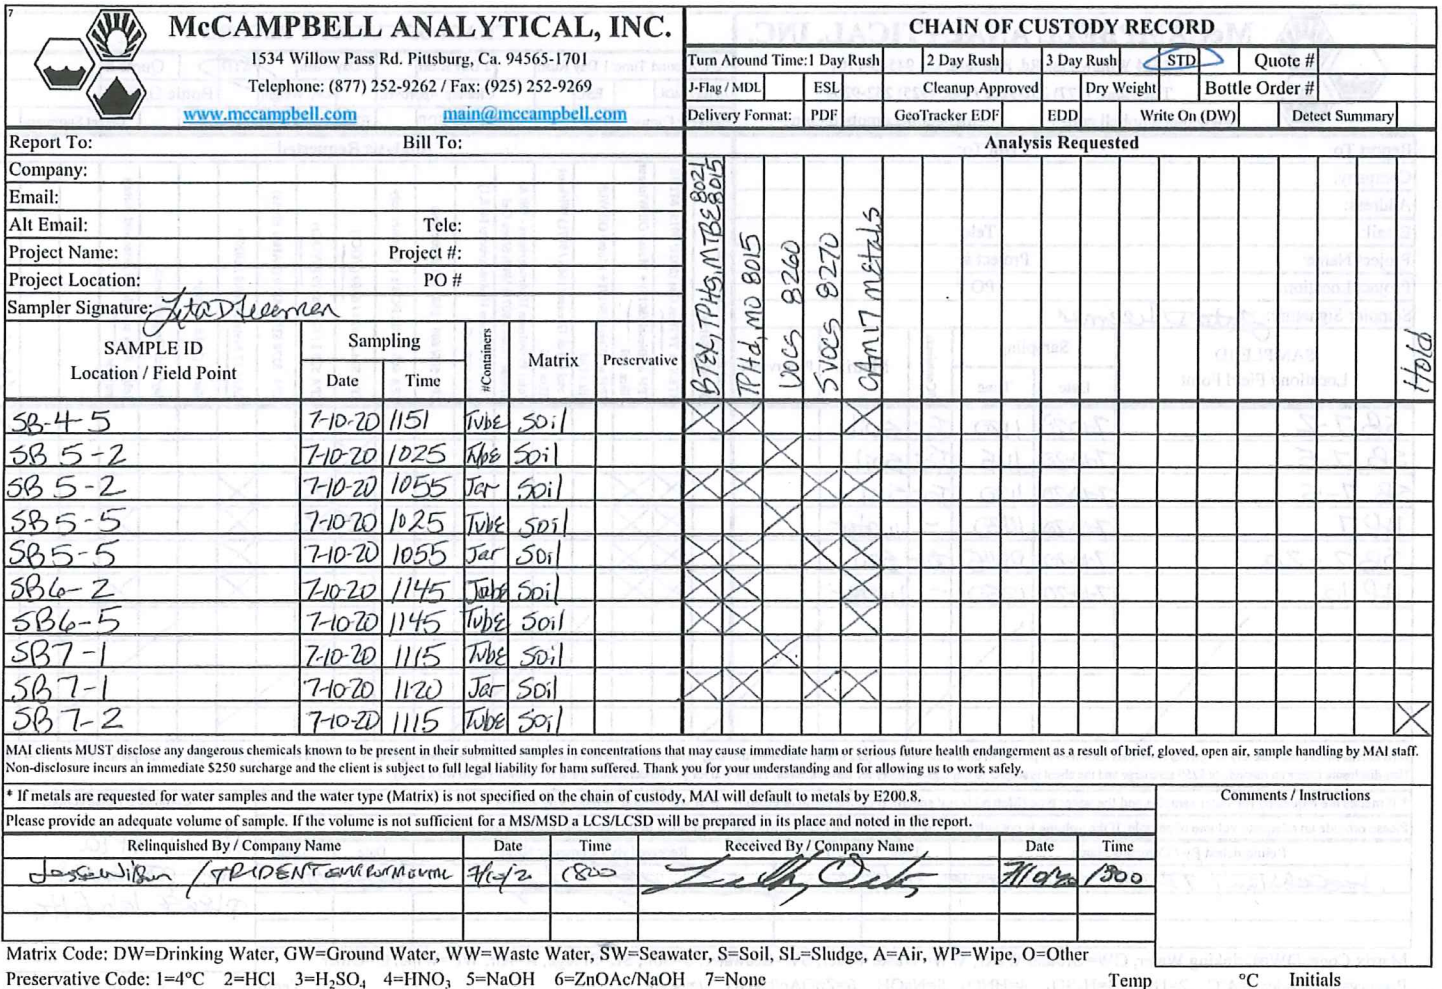 7
McCAMPBELL ANALYTICAL, INC.
1534 Willow Pass Rd. Pittsburg, Ca. 94565-1701
Telephone: (877) 252-9262 / Fax: (925) 252-9269
www.mccampbell.com main@mccampbell.com
CHAIN OF CUSTODY RECORD
Turn Around Time:1 Day Rush 2 Day Rush 3 Day Rush STD Quote #
J-Flag / MDL ESL Cleanup Approved Dry Weight Bottle Order #
Delivery Format: PDF GeoTracker EDF EDD Write On (DW) Detect Summary
Report To: Bill To:
Company:
Email:
Alt Email: Tele:
Project Name: Project #:
Project Location: PO #
Sampler Signature:
Analysis Requested
BTEX, TPHg, MTBE 8021 8015
TPHd, mo 8015
VOCs 8260
SVOCs 8270
CAM 17 Metals
Hold
SAMPLE ID
Location / Field Point
Sampling
Date Time
#Containers
Matrix
Preservative
SB-4-5 7-10-20 1151 Tube Soil X X X
SB5-2 7-10-20 1025 Tube Soil X
SB5-2 7-10-20 1055 Jar Soil X X X X
SB5-5 7-10-20 1025 Tube Soil X
SB5-5 7-10-20 1055 Jar Soil X X X X
SB6-2 7-10-20 1145 Tube Soil X X X
SB6-5 7-10-20 1145 Tube Soil X X X
SB7-1 7-10-20 1115 Tube Soil X
SB7-1 7-10-20 1120 Jar Soil X X X X
SB7-2 7-10-20 1115 Tube Soil X
MAI clients MUST disclose any dangerous chemicals known to be present in their submitted samples in concentrations that may cause immediate harm or serious future health endangerment as a result of brief, gloved, open air, sample handling by MAI staff.
Non-disclosure incurs an immediate $250 surcharge and the client is subject to full legal liability for harm suffered. Thank you for your understanding and for allowing us to work safely.
* If metals are requested for water samples and the water type (Matrix) is not specified on the chain of custody, MAI will default to metals by E200.8.
Please provide an adequate volume of sample. If the volume is not sufficient for a MS/MSD a LCS/LCSD will be prepared in its place and noted in the report.
Comments / Instructions
Relinquished By / Company Name Date Time Received By / Company Name Date Time
Jesse Wilson / TRIDENT ENVIRONMENTAL 1800
Matrix Code: DW=Drinking Water, GW=Ground Water, WW=Waste Water, SW=Seawater, S=Soil, SL=Sludge, A=Air, WP=Wipe, O=Other
Preservative Code: 1=4°C 2=HCl 3=H₂SO₄ 4=HNO₃ 5=NaOH 6=ZnOAc/NaOH 7=None
Temp °C Initials